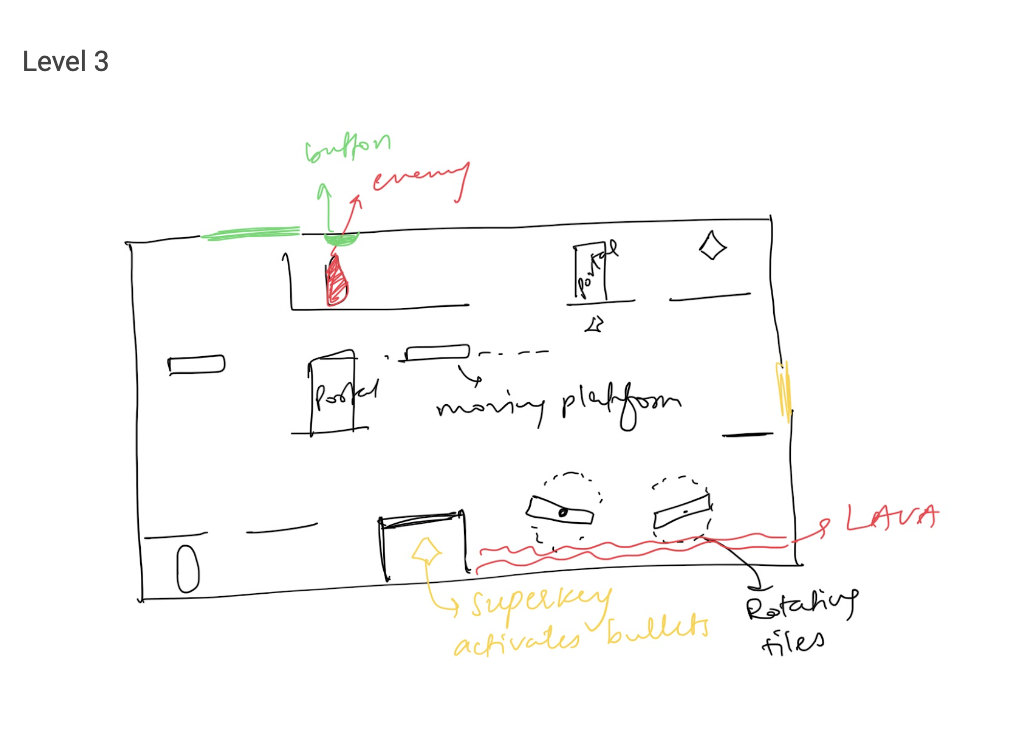 Level 3
button
enemy
portal
Portal
moving platform
LAVA
superkey
activates bullets
Rotating
tiles